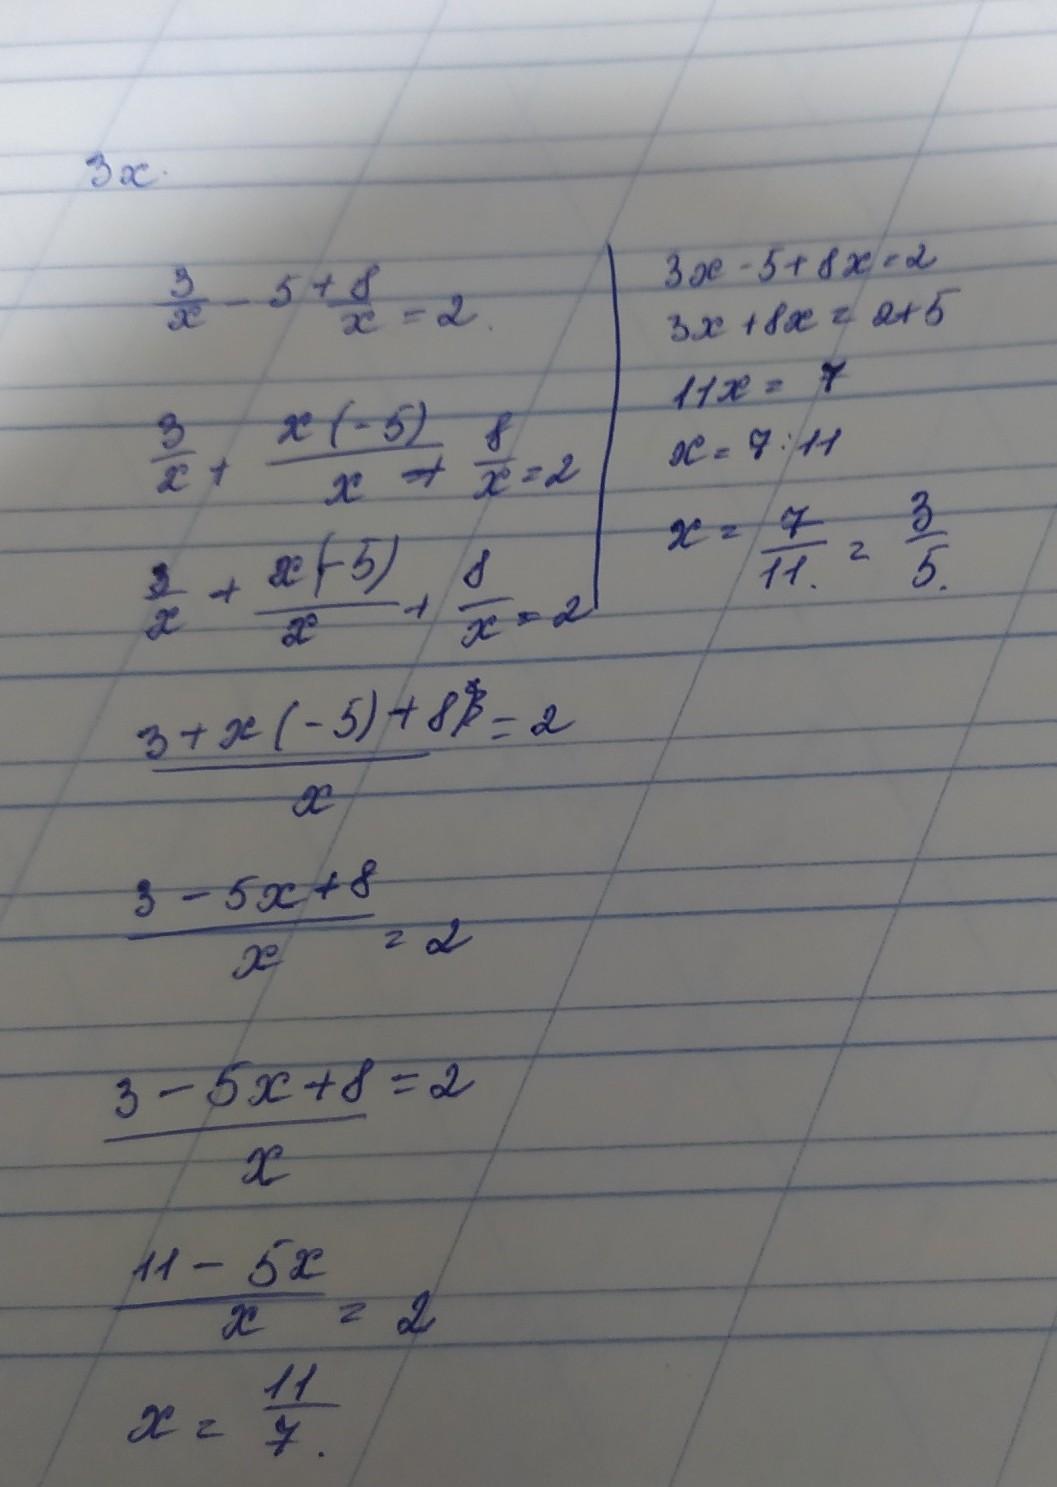 3x.
3/x - 5 + 8/x = 2.
3/x + x(-5)/x + 8/x = 2
3/x + x(-5)/x + 8/x = 2
3 + x(-5) + 8 / x = 2
3 - 5x + 8 / x = 2
3 - 5x + 8 / x = 2
11 - 5x / x = 2
x = 11/7.
3x - 5 + 8x = 2
3x + 8x = 2 + 5
11x = 7
x = 7 : 11
x = 7/11. = 3/5.